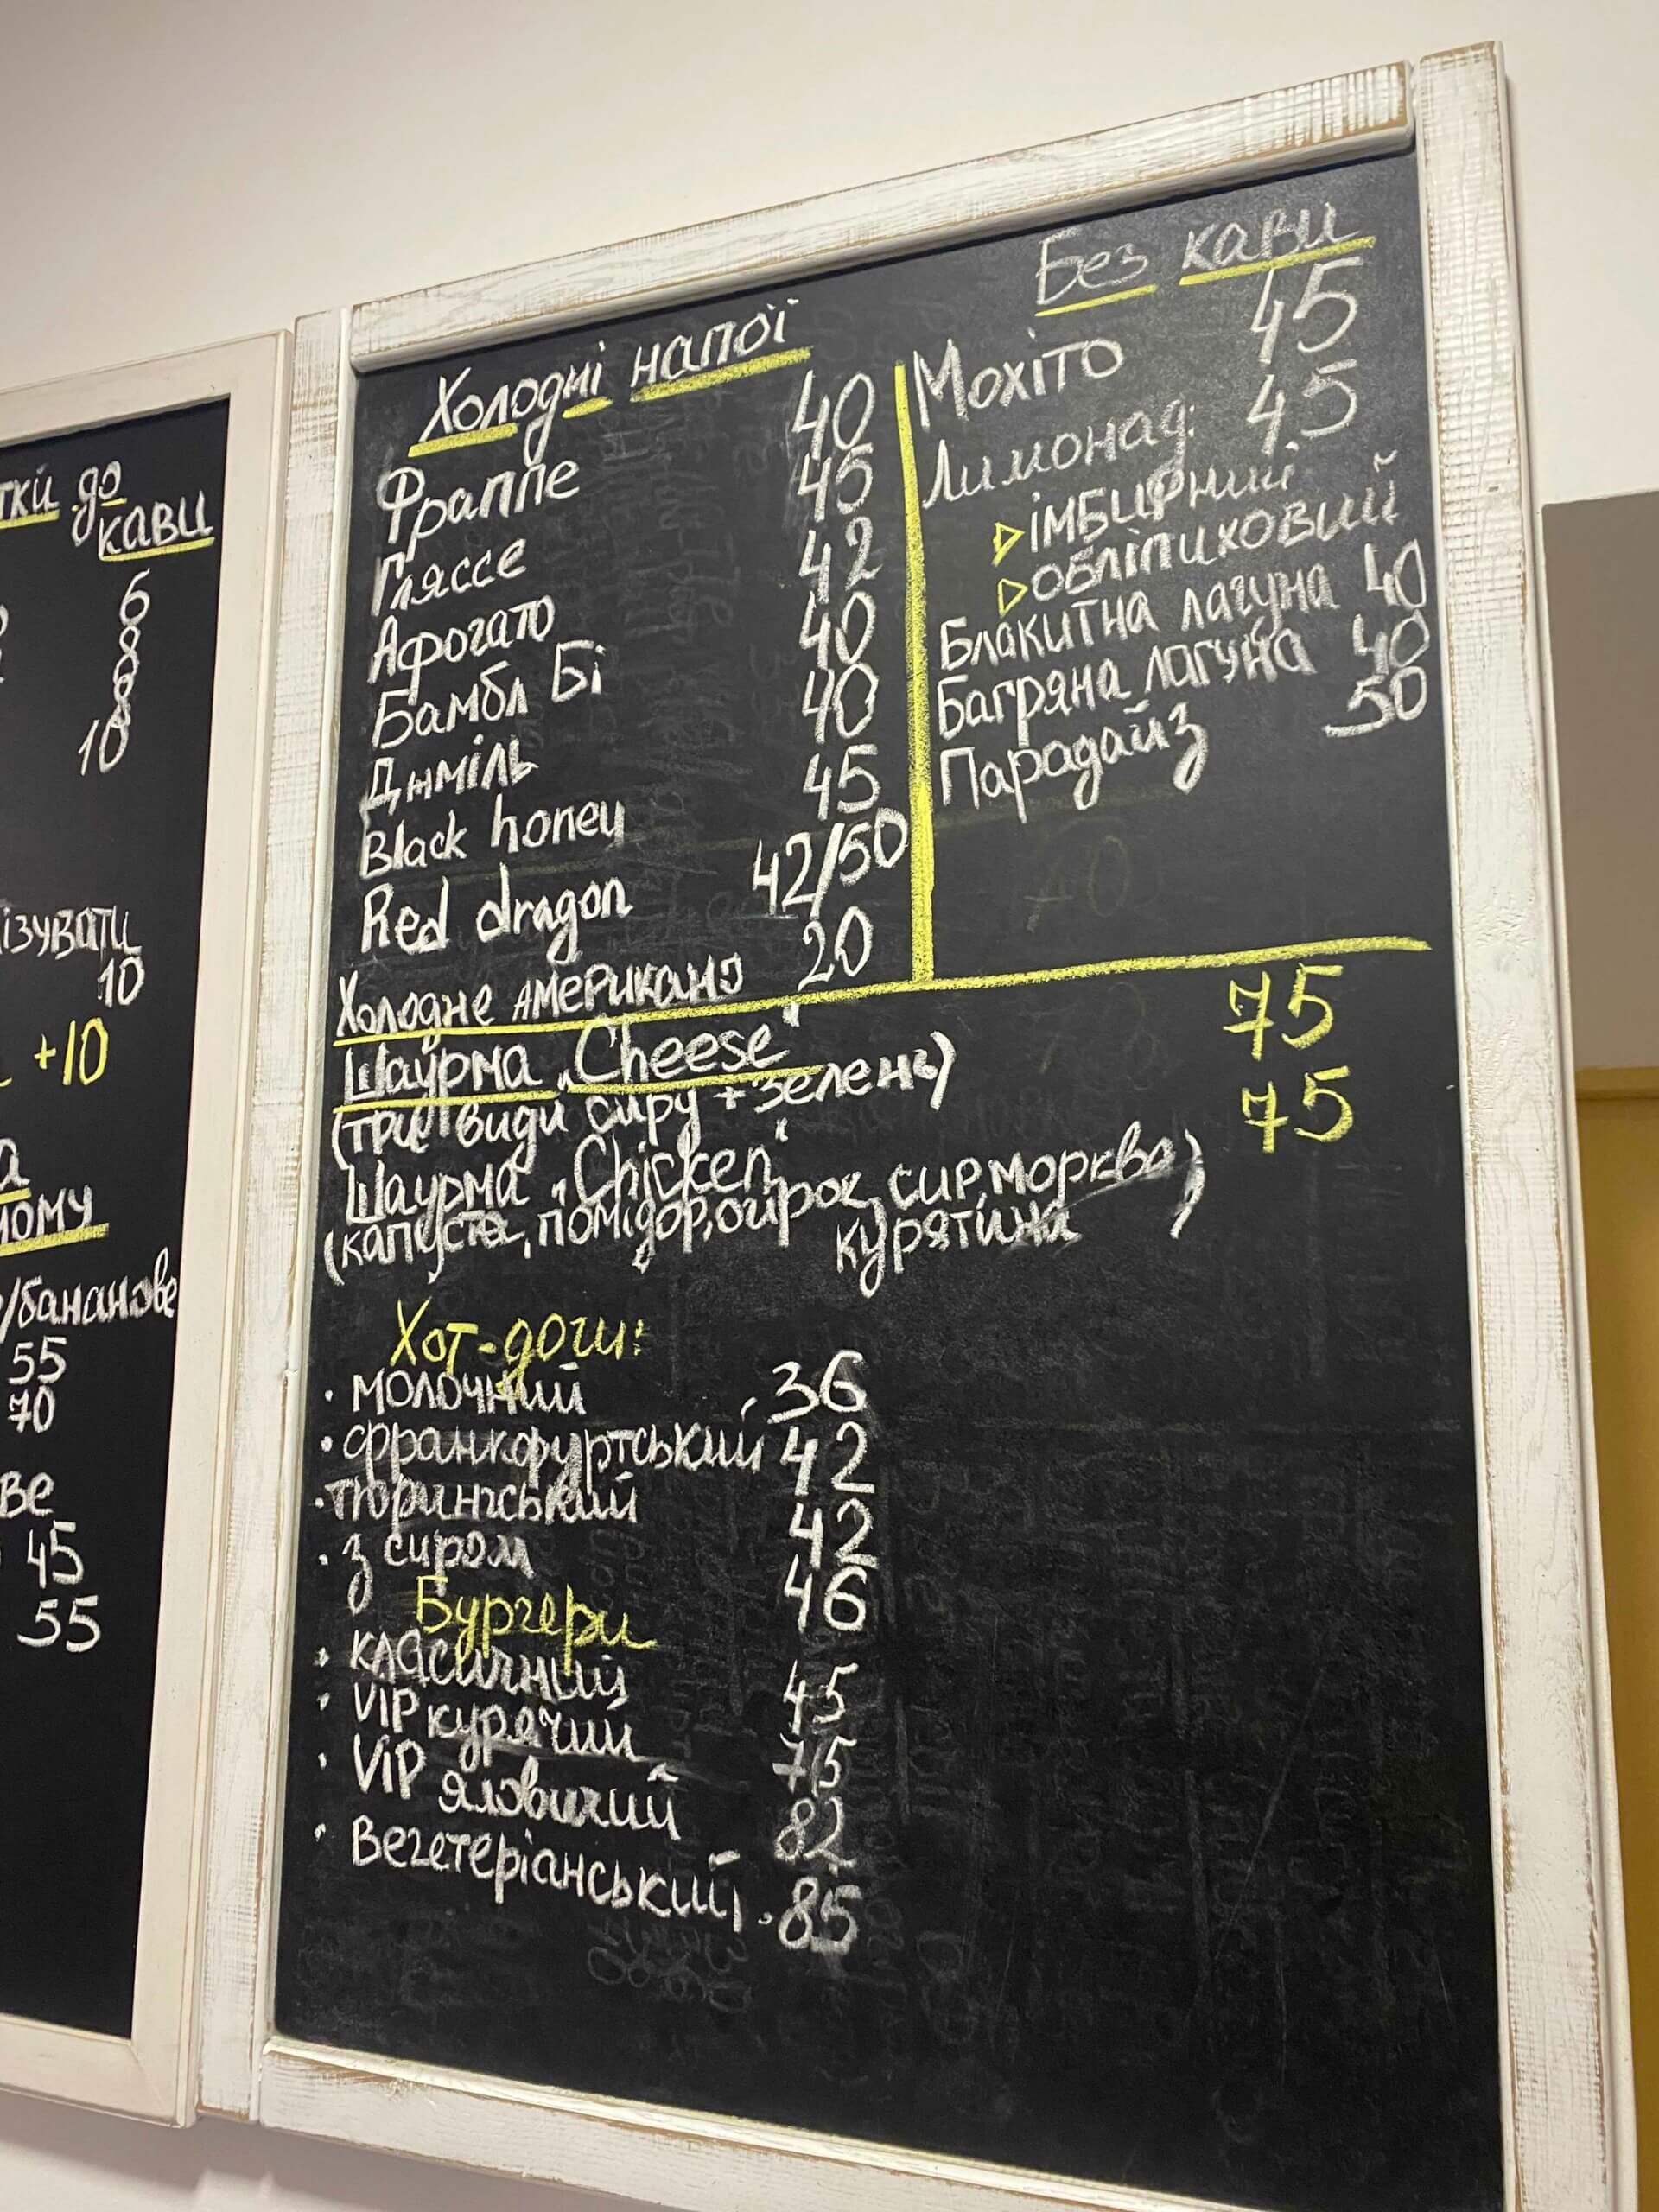 тки до
кави
6
8
8
8
10
ізувати
10
+10
а
ому
/бананове
55
70
ве
45
55
Холодні напої
Фраппе 40
Гляссе 45
Афогато 42
Бамбл Бі 40
Джміль 40
Black honey 45
Red dragon 42/50
Холодне американо 20
Без кави
Мохіто 45
Лимонад: 45
імбирний
обліпиховий
Блакитна лагуна 40
Багряна лагуна 40
Парадайз 50
Шаурма „Cheese" 75
(три види сиру + зелень)
Шаурма „Chicken" 75
(капуста, помідор, огірок, сир морква
курятина)
Хот-доги:
· молочний 36
· франкфуртський 42
· тюрингський 42
· з сиром 46
Бургери
· класичний 45
· VIP курячий 75
· VIP яловичий 82
· Вегетеріанський 85